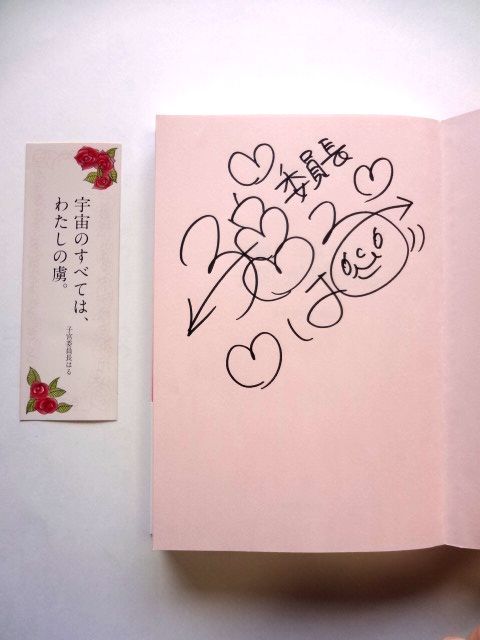 宇宙のすべては、
わたしの虜。
子宮委員長はる
委員長
はる